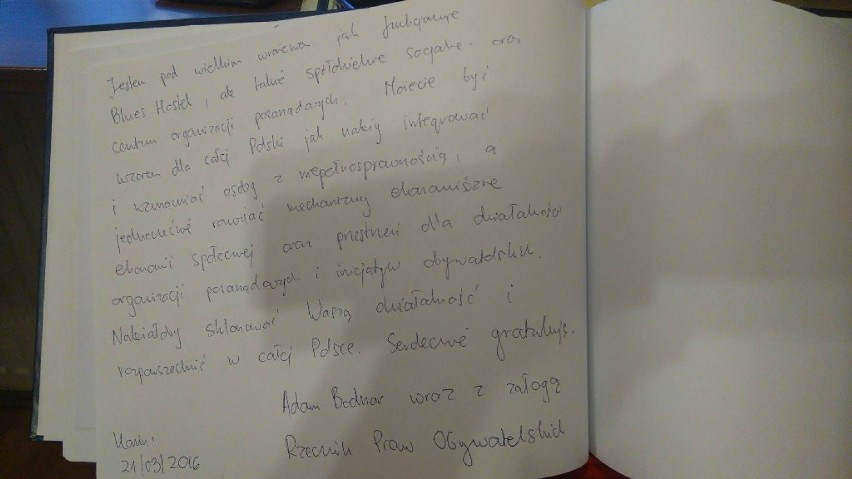 Jestem pod wielkim wrażeniem jak funkcjonuje
Blues Hostel, ale także spółdzielnie socjalne oraz
centrum organizacji pozarządowych. Możecie być
wzorem dla całej Polski jak należy integrować
i wzmacniać osoby z niepełnosprawnością, a
jednocześnie rozwijać mechanizmy ekonomiczne
ekonomii społecznej oraz przestrzeń dla działalności
organizacji pozarządowych i inicjatyw obywatelskich.
Należałoby sklonować Waszą działalność i
rozpowszechnić w całej Polsce. Serdecznie gratuluję.
Adam Bodnar wraz z załogą
Rzecznik Praw Obywatelskich
21/03/2016